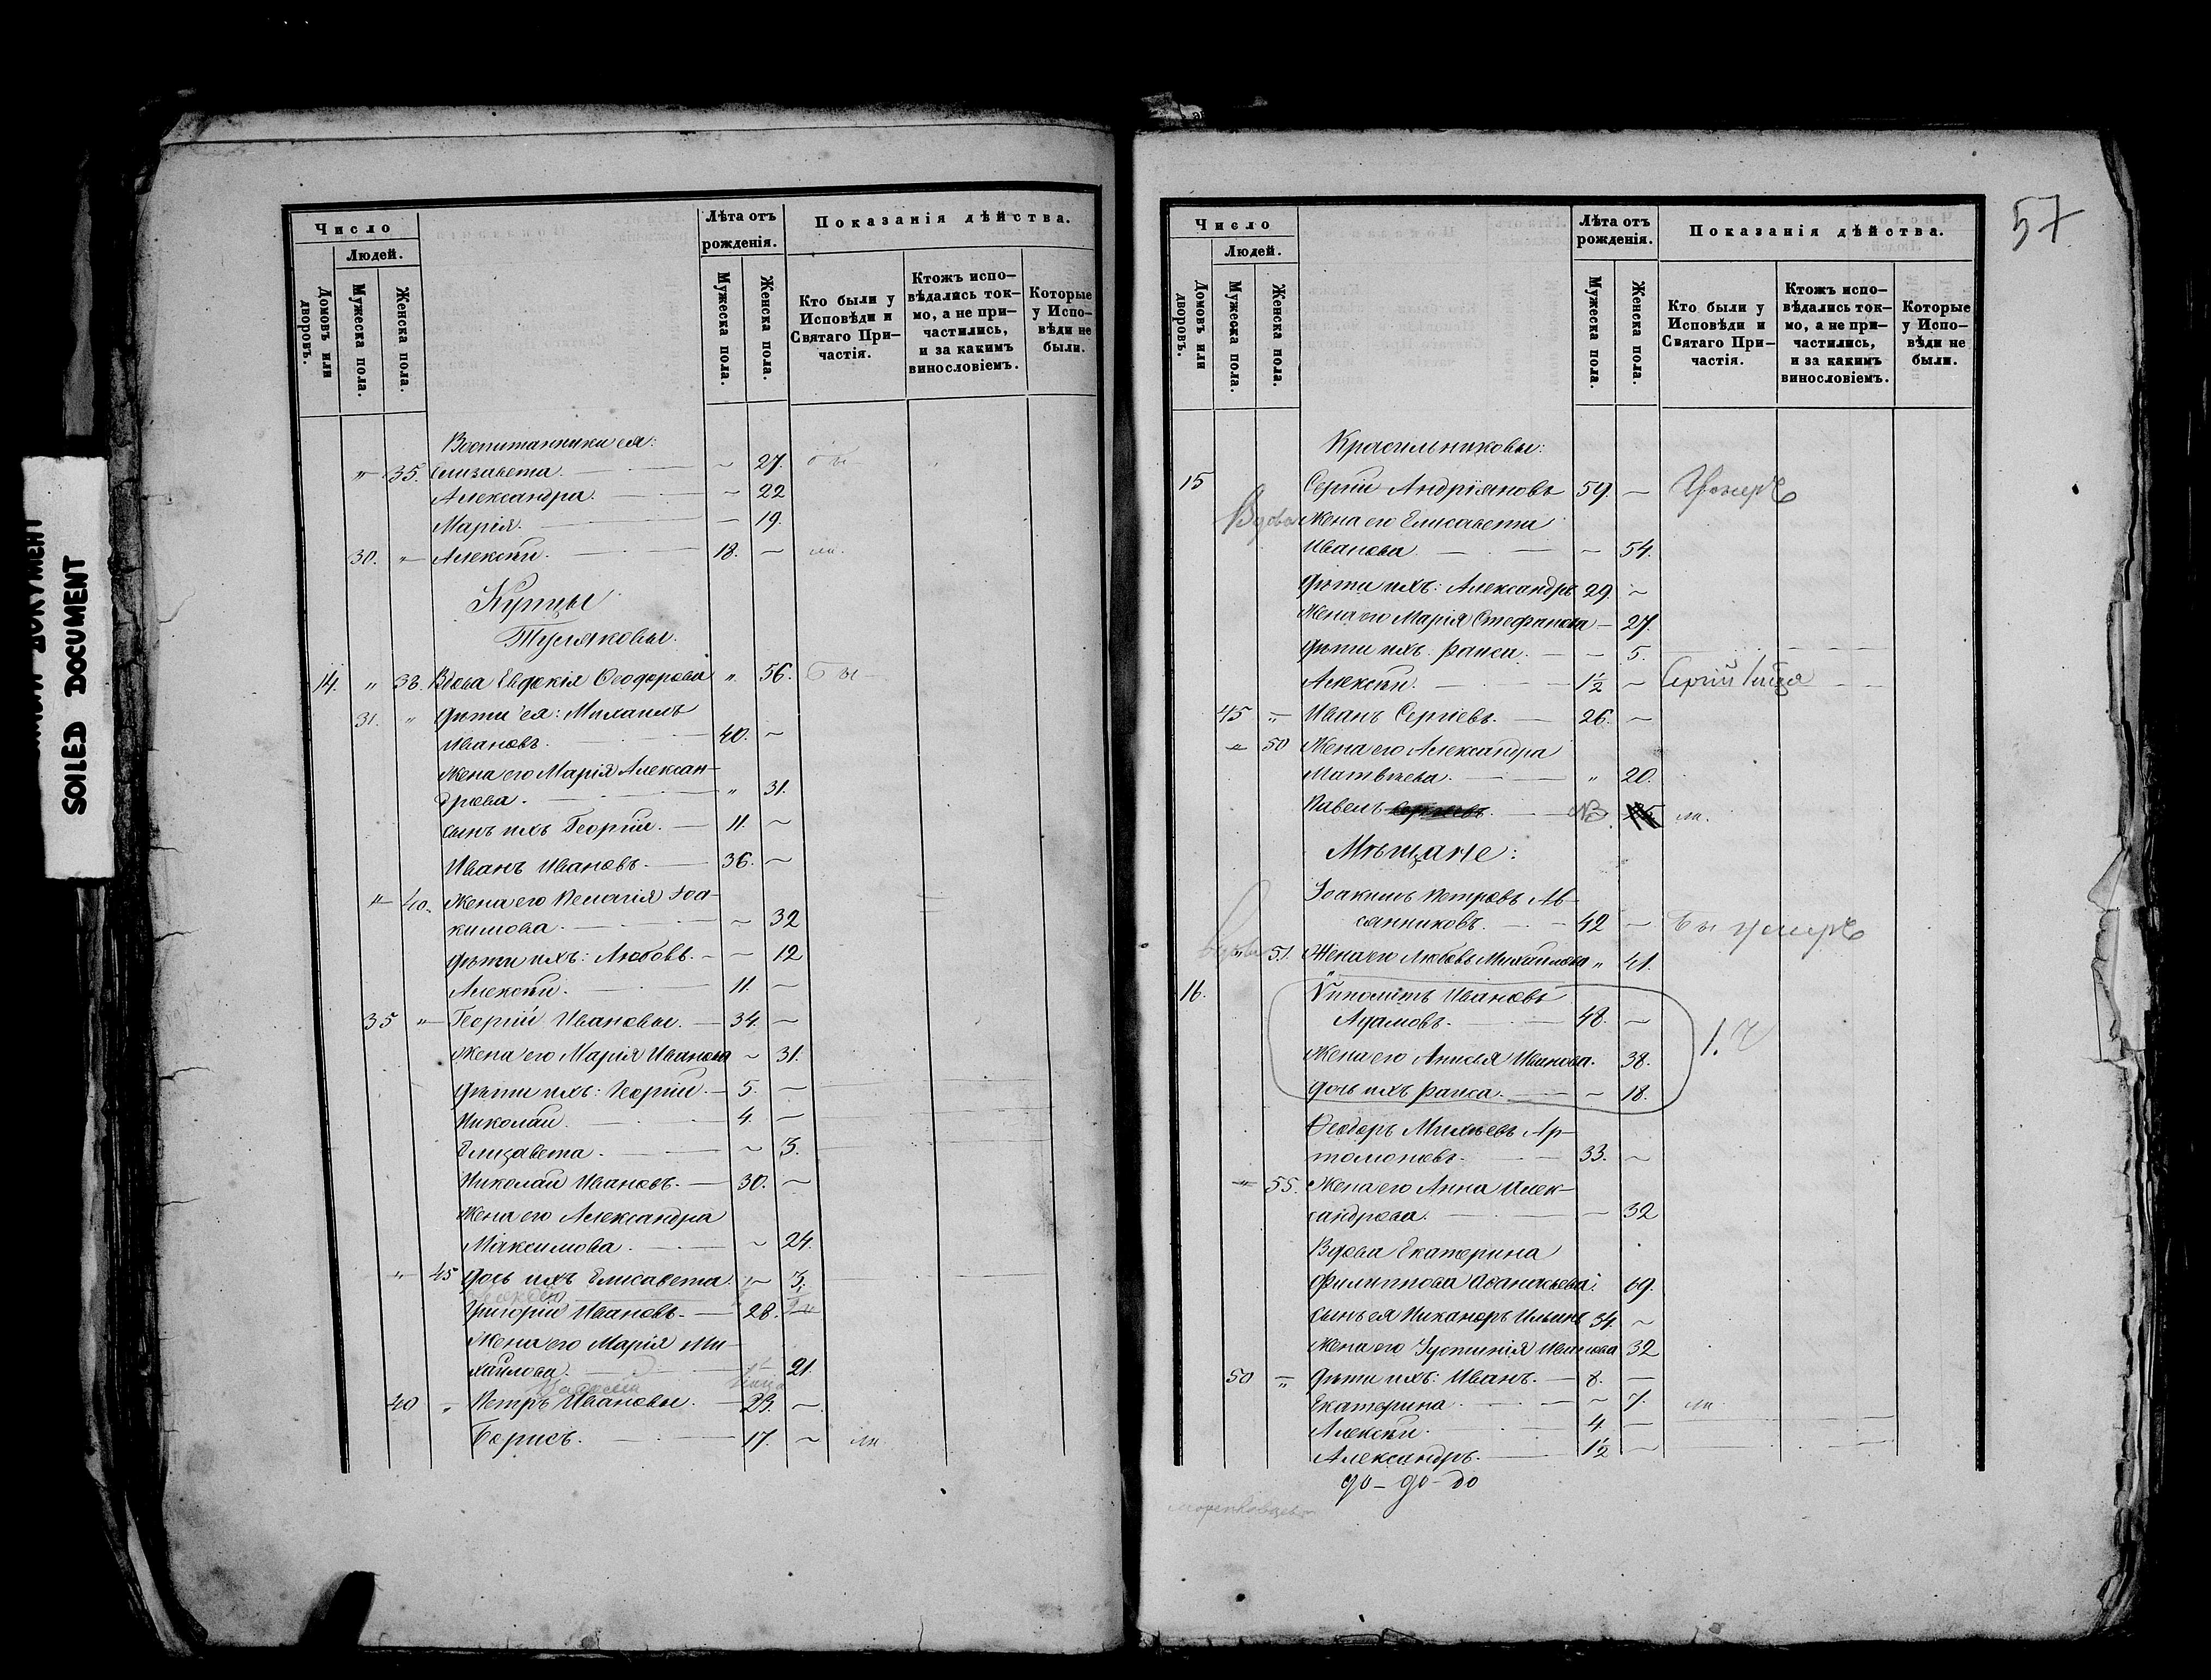 SOILED DOCUMENT
Число
Людей.
Домовъ или дворовъ.
Мужеска пола.
Женска пола.
Лѣта отъ рожденія.
Мужеска пола.
Женска пола.
Показанія дѣйства.
Кто были у Исповѣди и Святаго Причастія.
Ктожъ исповѣдались токмо, а не причастились, и за какимъ винословіемъ.
Которые у Исповѣди не были.
Воспитанники ея:
" 35. Елизавета. 27. бы
Александра. 22
Марія. 19.
30. " Алексѣй. 18. ли.
Купцы
Тусляковы.
14. " 38. Вдова Евдокія Ѳеодорова " 56. Бы
31. " Дѣти ея: Михаилъ
Ивановъ. 40.
Жена его Марія Алексан-
дрова. " 31.
сынъ ихъ Георгій. 11.
Иванъ Ивановъ. 36.
" 40. Жена его Пелагія Іоа-
кимова. 32
Дѣти ихъ: Любовь. 12
Алексѣй. 11.
35 " Георгій Ивановы. 34.
Жена его Марія Иванова 31.
Дѣти ихъ: Георгій. 5.
Николай. 4.
Елизавета. 3.
Николай Ивановъ. 30.
Жена его Александра
Максимова. 24.
" 45 Дочь ихъ Елисавета. 3.
Григорій Ивановъ. 28.
Жена его Марія Ми-
хайлова. 21.
40 " Петръ Ивановы. 23.
Борисъ. 17. ли.
57
Число
Людей.
Домовъ или дворовъ.
Мужеска пола.
Женска пола.
Лѣта отъ рожденія.
Мужеска пола.
Женска пола.
Показанія дѣйства.
Кто были у Исповѣди и Святаго Причастія.
Ктожъ исповѣдались токмо, а не причастились, и за какимъ винословіемъ.
Которые у Исповѣди не были.
Красильниковы:
15 Сергій Андріяновъ 59. Умеръ
Вдова Жена его Елисавета
Иванова 54.
Дѣти ихъ: Александръ 29.
Жена его Марія Стефанова 27.
Дѣти ихъ: Раиса. 5.
Алексѣй. 1½ Сергій
45 " Иванъ Сергіевъ. 26.
" 50 Жена его Александра
Матвѣева. " 20.
Павелъ ли.
Мѣщане:
Іоакимъ Петровъ Ав-
сянниковъ. 42 Бы умеръ
Вдова " 51. Жена его Любовь Михайлова " 41.
16. Ѵпполитъ Ивановъ
Адамовъ. 48.
Жена его Анисья Иванова. 38.
Дочь ихъ Раиса. 18.
Ѳеодоръ Михѣевъ Ар-
томоновъ. 33.
" 55. Жена его Анна Алек-
сандрова. 32
Вдова Екатерина
Филиппова Аѳанасьева. 69.
Сынъ ея Никаноръ Ильинъ 34.
Жена его Іустинія Иванова 32
50 " Дѣти ихъ: Иванъ. 8.
Екатерина. 7. ли.
Алексѣй. 4
Александръ. 1½
до-до-до